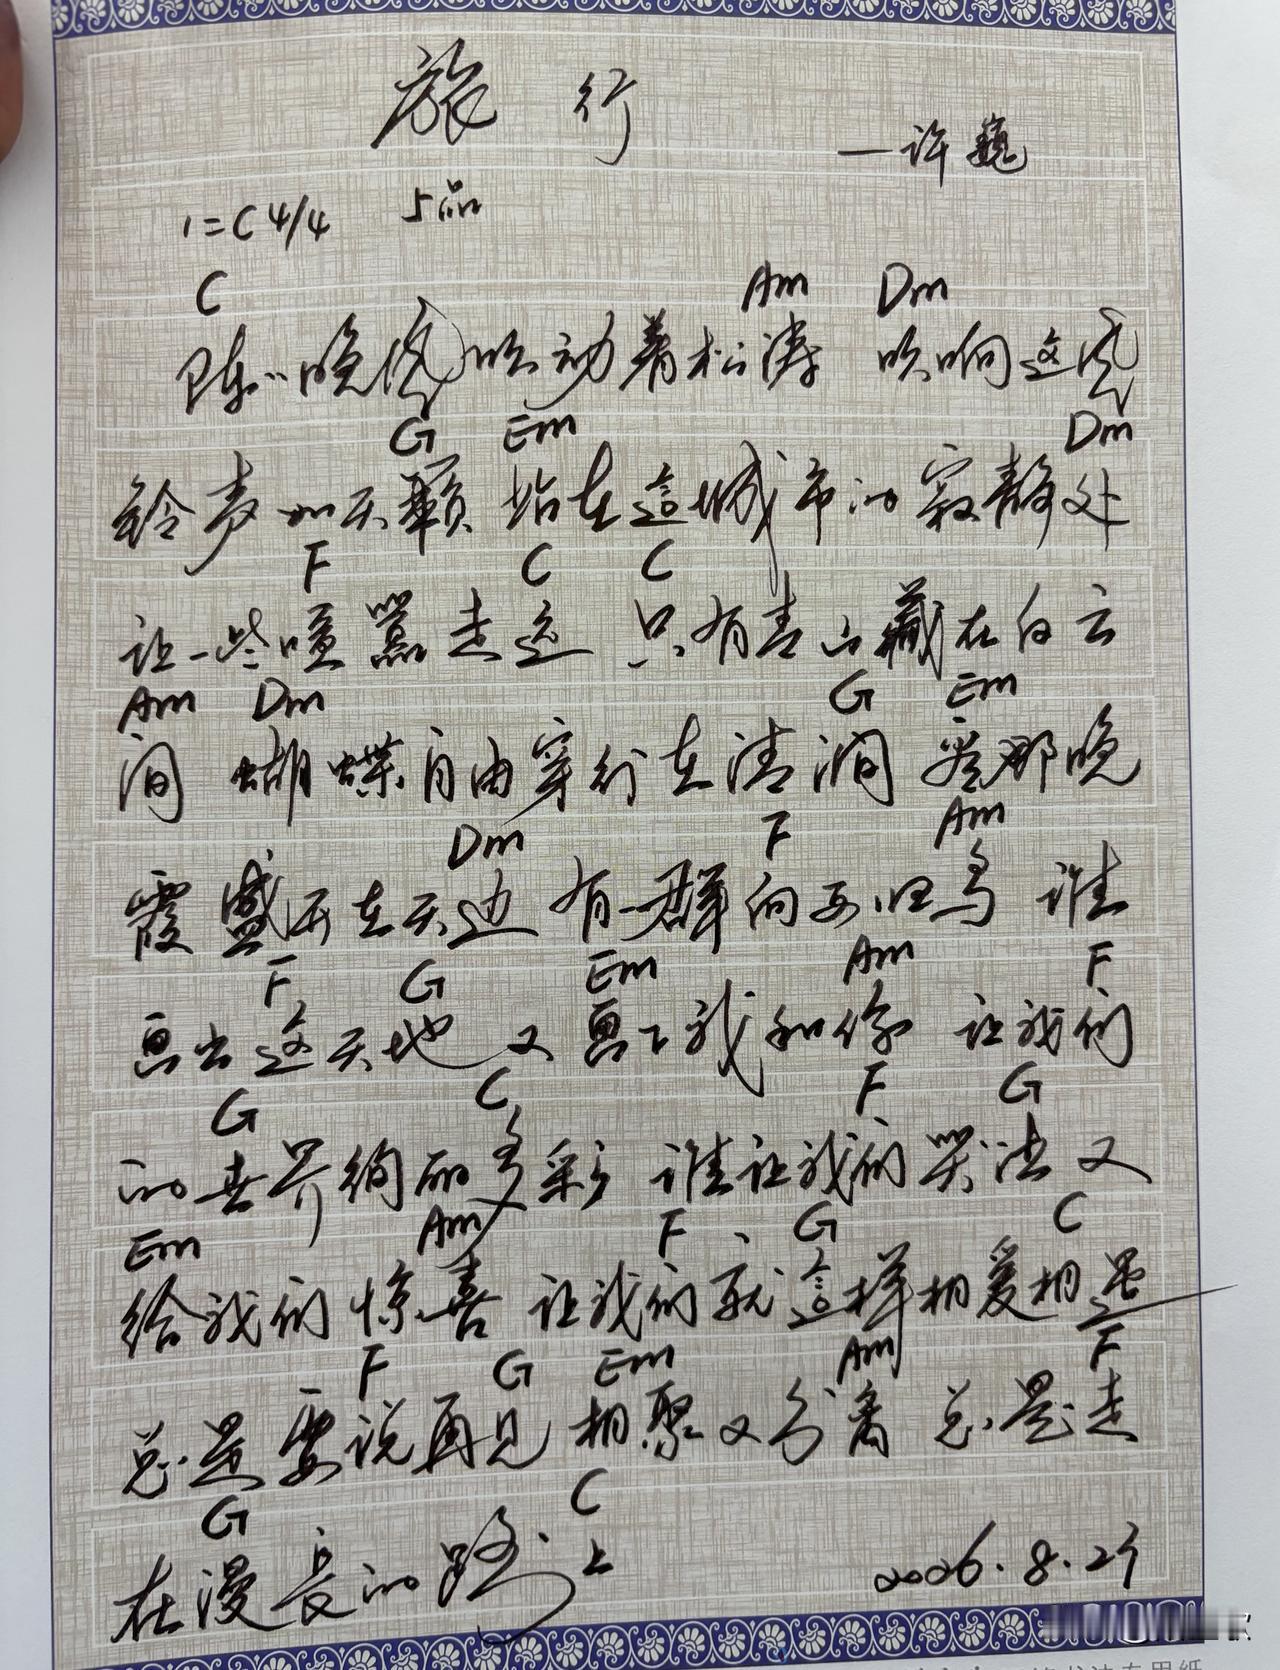 旅行
—许巍
1=C 4/4 5品
C Am Dm
阵阵晚风吹动着松涛 吹响这风
G Em Dm
铃声如天籁 站在這城市的寂静处
F C C
让一些喧嚣走远 只有青山藏在白云
Am Dm G Em
间 蝴蝶自由穿行在清涧 看那晚
Dm F Am
霞盛开在天边 有一群向西归鸟 谁
F G Em Am F
画出这天地 又画下我和你 让我们
G C F G
的世界绚丽多彩 谁让我们哭泣 又
Em Am F G C
给我们惊喜 让我们就這样相爱相遇
F G Em Am F
总是要说再见 相聚又分离 总是走
G C
在漫长的路上